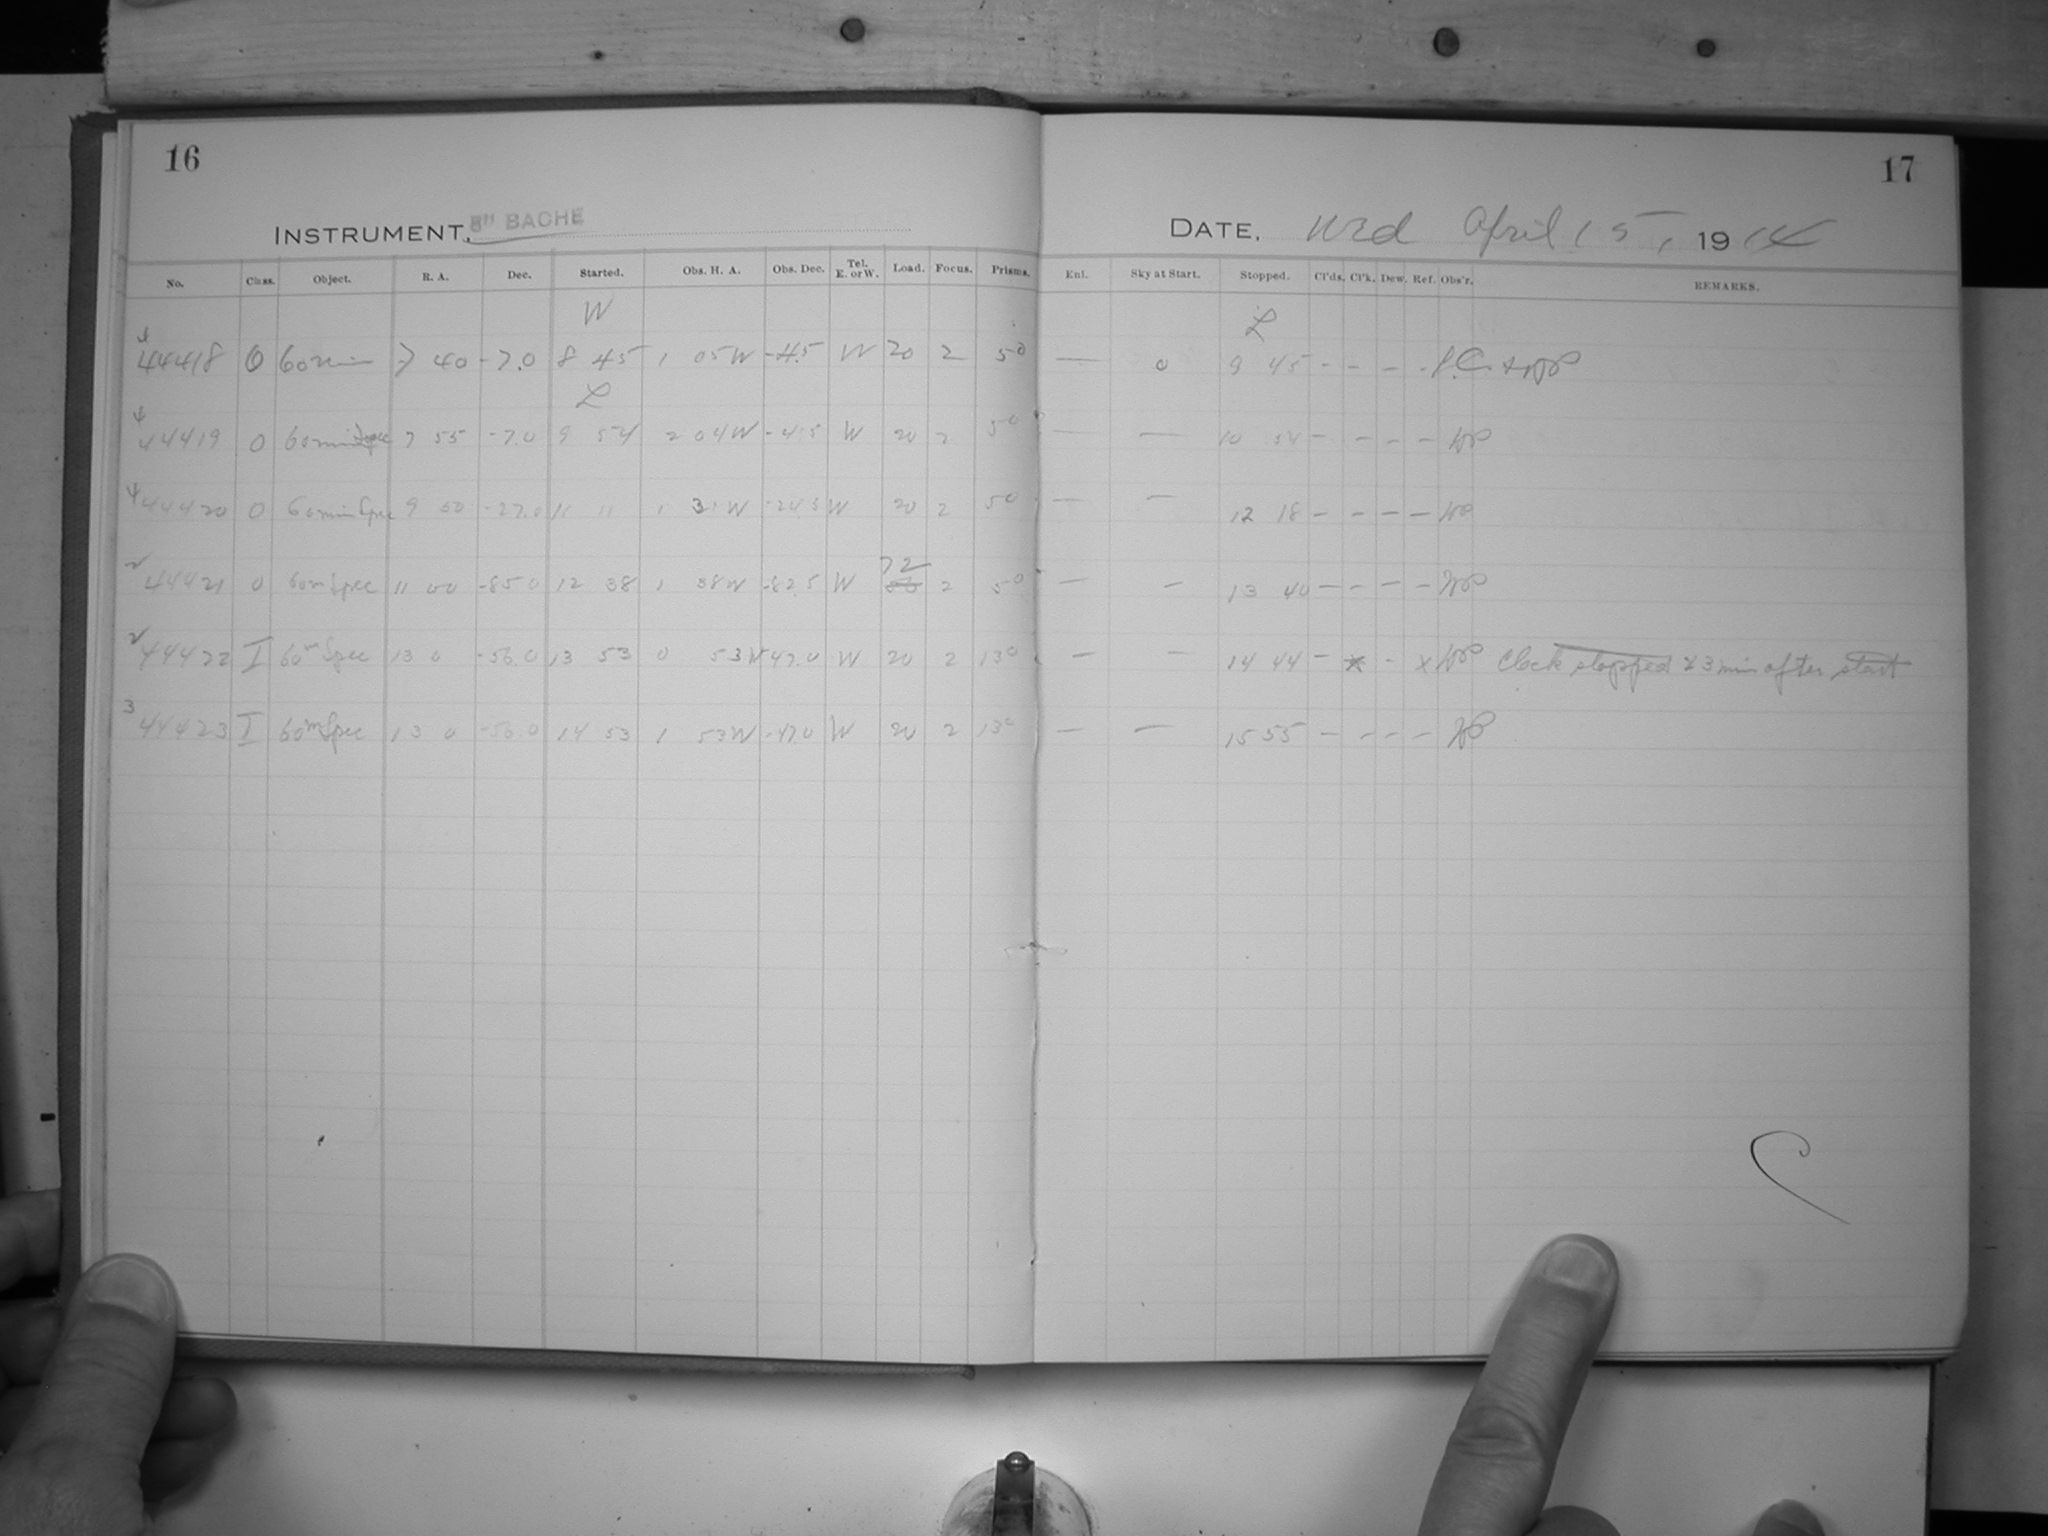 16
17
INSTRUMENT, 8" BACHE
DATE, Wed April 15, 1914
No. Class. Object. R. A. Dec. Started. Obs. H. A. Obs. Dec. Tel. E. or W. Load. Focus. Prisms. Enl. Sky at Start. Stopped. Cl'ds. Cl'k. Dew. Ref. Obs'r. REMARKS.
W L
44418 0 60 min 7 40 -7.0 8 45 1 05W -4.5 W 20 2 50 — 0 9 45 - - - -
L
44419 0 60 min 7 55 -7.0 9 54 2 04W -4.5 W 20 2 50 — — 10 54 - - - -
44420 0 60 min Spec 9 50 -27.0 11 11 1 31W -24.5 W 20 2 50 — — 12 18 - - - -
2 44421 0 60m Spec 11 00 -85.0 12 38 1 38W -82.5 W 72 2 50 — — 13 40 - - - -
2 44422 I 60m Spec 13 0 -56.0 13 53 0 53W -47.0 W 20 2 13° — — 14 44 - x - x Clock stopped 23 min after start
3 44423 I 60m Spec 13 0 -56.0 14 53 1 53W -47.0 W 20 2 13° — — 15 55 - - - -